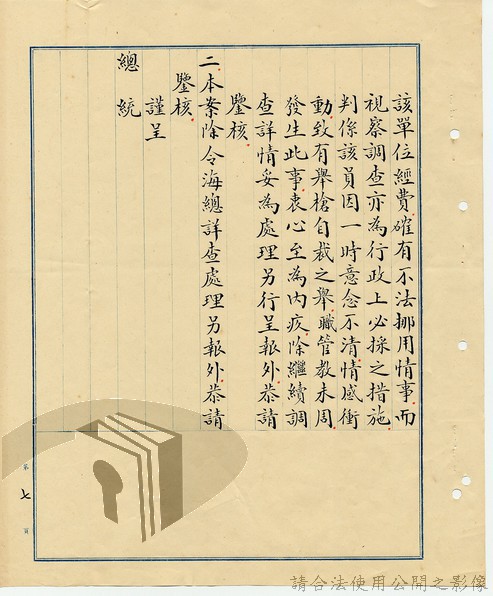 該單位經費確有不法挪用情事而
視察調查亦為行政上必採之措施
判係該員因一時意念不清情感衝
動致有舉槍自裁之舉職管教未周
發生此事衷心至為內疚除繼續調
查詳情妥為處理另行呈報外恭請
鑒核
二本案除令海總詳查處理另報外恭請
鑒核
謹呈
總統
第七頁
請合法使用公開之影像